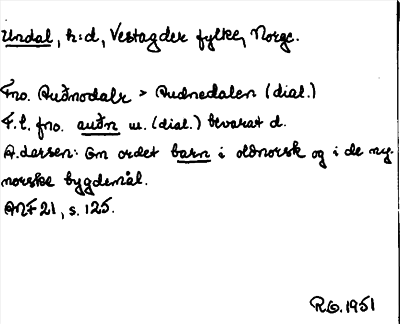 Undal, h:d, Vestagder fylke, Norge.
Fno. Auðnodalr > Audnedalen (dial.)
F.l. fno. auðn m. (dial.) bevarat d.
A. Larsen: Om ordet barn i oldnorsk og i de ny-
norske bygdemål.
ANF 21, s. 125.
R.O. 1951